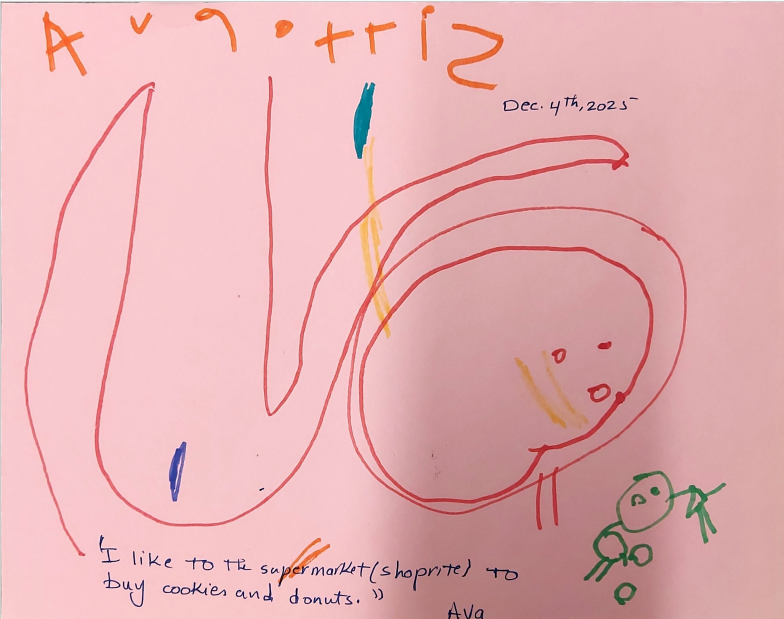 Ava ortiz
Dec. 4th, 2025
"I like to the supermarket (shoprite) to
buy cookies and donuts."
Ava